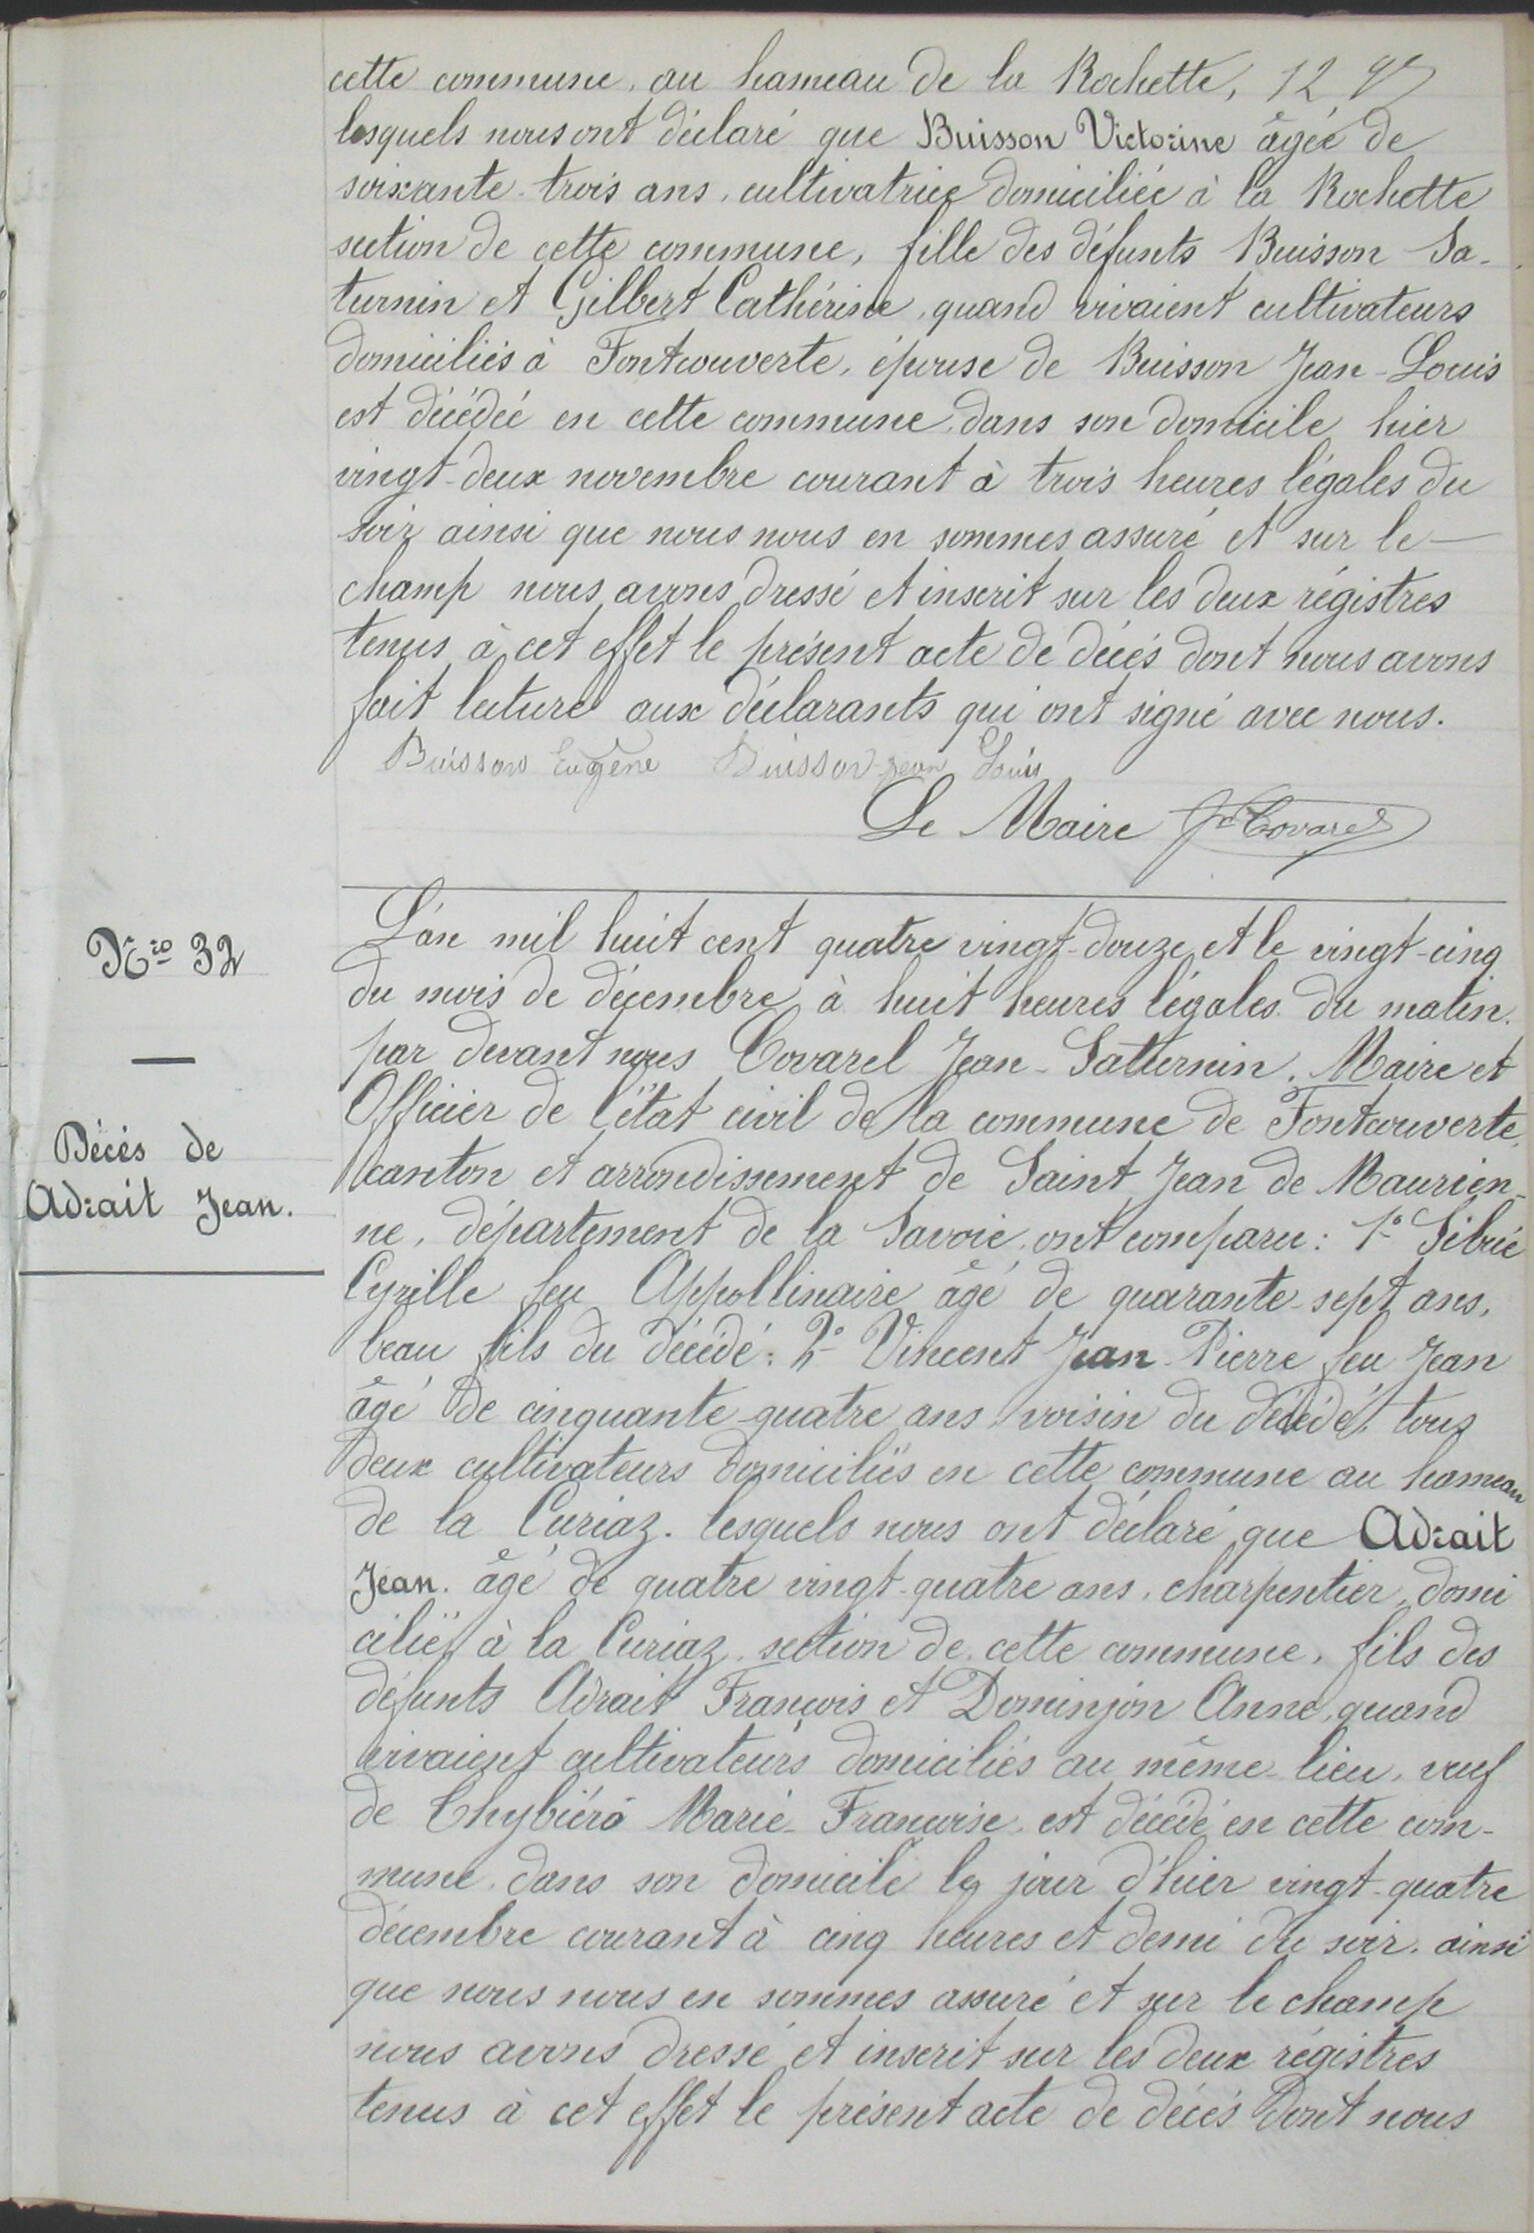 cette commune, au hameau de la Rochette,
lesquels nous ont déclaré que Buisson Victorine âgée de
soixante-trois ans, cultivatrice domiciliée à la Rochette
section de cette commune, fille des défunts Buisson Sa-
turnin et Gilbert Cathérine, quand vivaient cultivateurs
domiciliés à Fontcouverte, épouse de Buisson Jean-Louis
est décédée en cette commune, dans son domicile, hier
vingt-deux novembre courant à trois heures légales du
soir ainsi que nous nous en sommes assuré et sur le
champ nous avons dressé et inscrit sur les deux régistres
tenus à cet effet le présent acte de décés dont nous avons
fait lecture aux déclarants qui ont signé avec nous.
Buisson Eugène Buisson Jean Louis
Le Maire Covarel
Nro 32
Décés de
Adrait Jean.
L'an mil huit cent quatre vingt-douze et le vingt-cinq
du mois de décembre à huit heures légales du matin.
par devant nous Covarel Jean-Satturnin, Maire et
Officier de l'état civil de la commune de Fontcouverte,
canton et arrondissement de Saint Jean de Maurien-
ne, département de la Savoie, ont comparu: 1° Sibué
Cyrille feu Appollinaire âgé de quarante-sept ans,
beau fils du décédé: 2° Vincent Jean-Pierre feu Jean
âgé de cinquante-quatre ans voisin du décédé, tous
deux cultivateurs domiciliés en cette commune au hameau
de la Curiaz. lesquels nous ont déclaré que Adrait
Jean. âgé de quatre vingt-quatre ans, charpentier, domi
cilié à la Curiaz, section de cette commune, fils des
défunts Adrait François et Dominjon Anne, quand
vivaient cultivateurs domiciliés au même-lieu, veuf
de Chybiéro Marie-Francoise, est décédé en cette com-
mune, dans son domicile le jour d'hier vingt-quatre
décembre courant à cinq heures et demi du soir. ainsi
que nous nous en sommes assuré et sur le champ
nous avons dressé et inscrit sur les deux régistres
tenus à cet effet le présent acte de décés dont nous